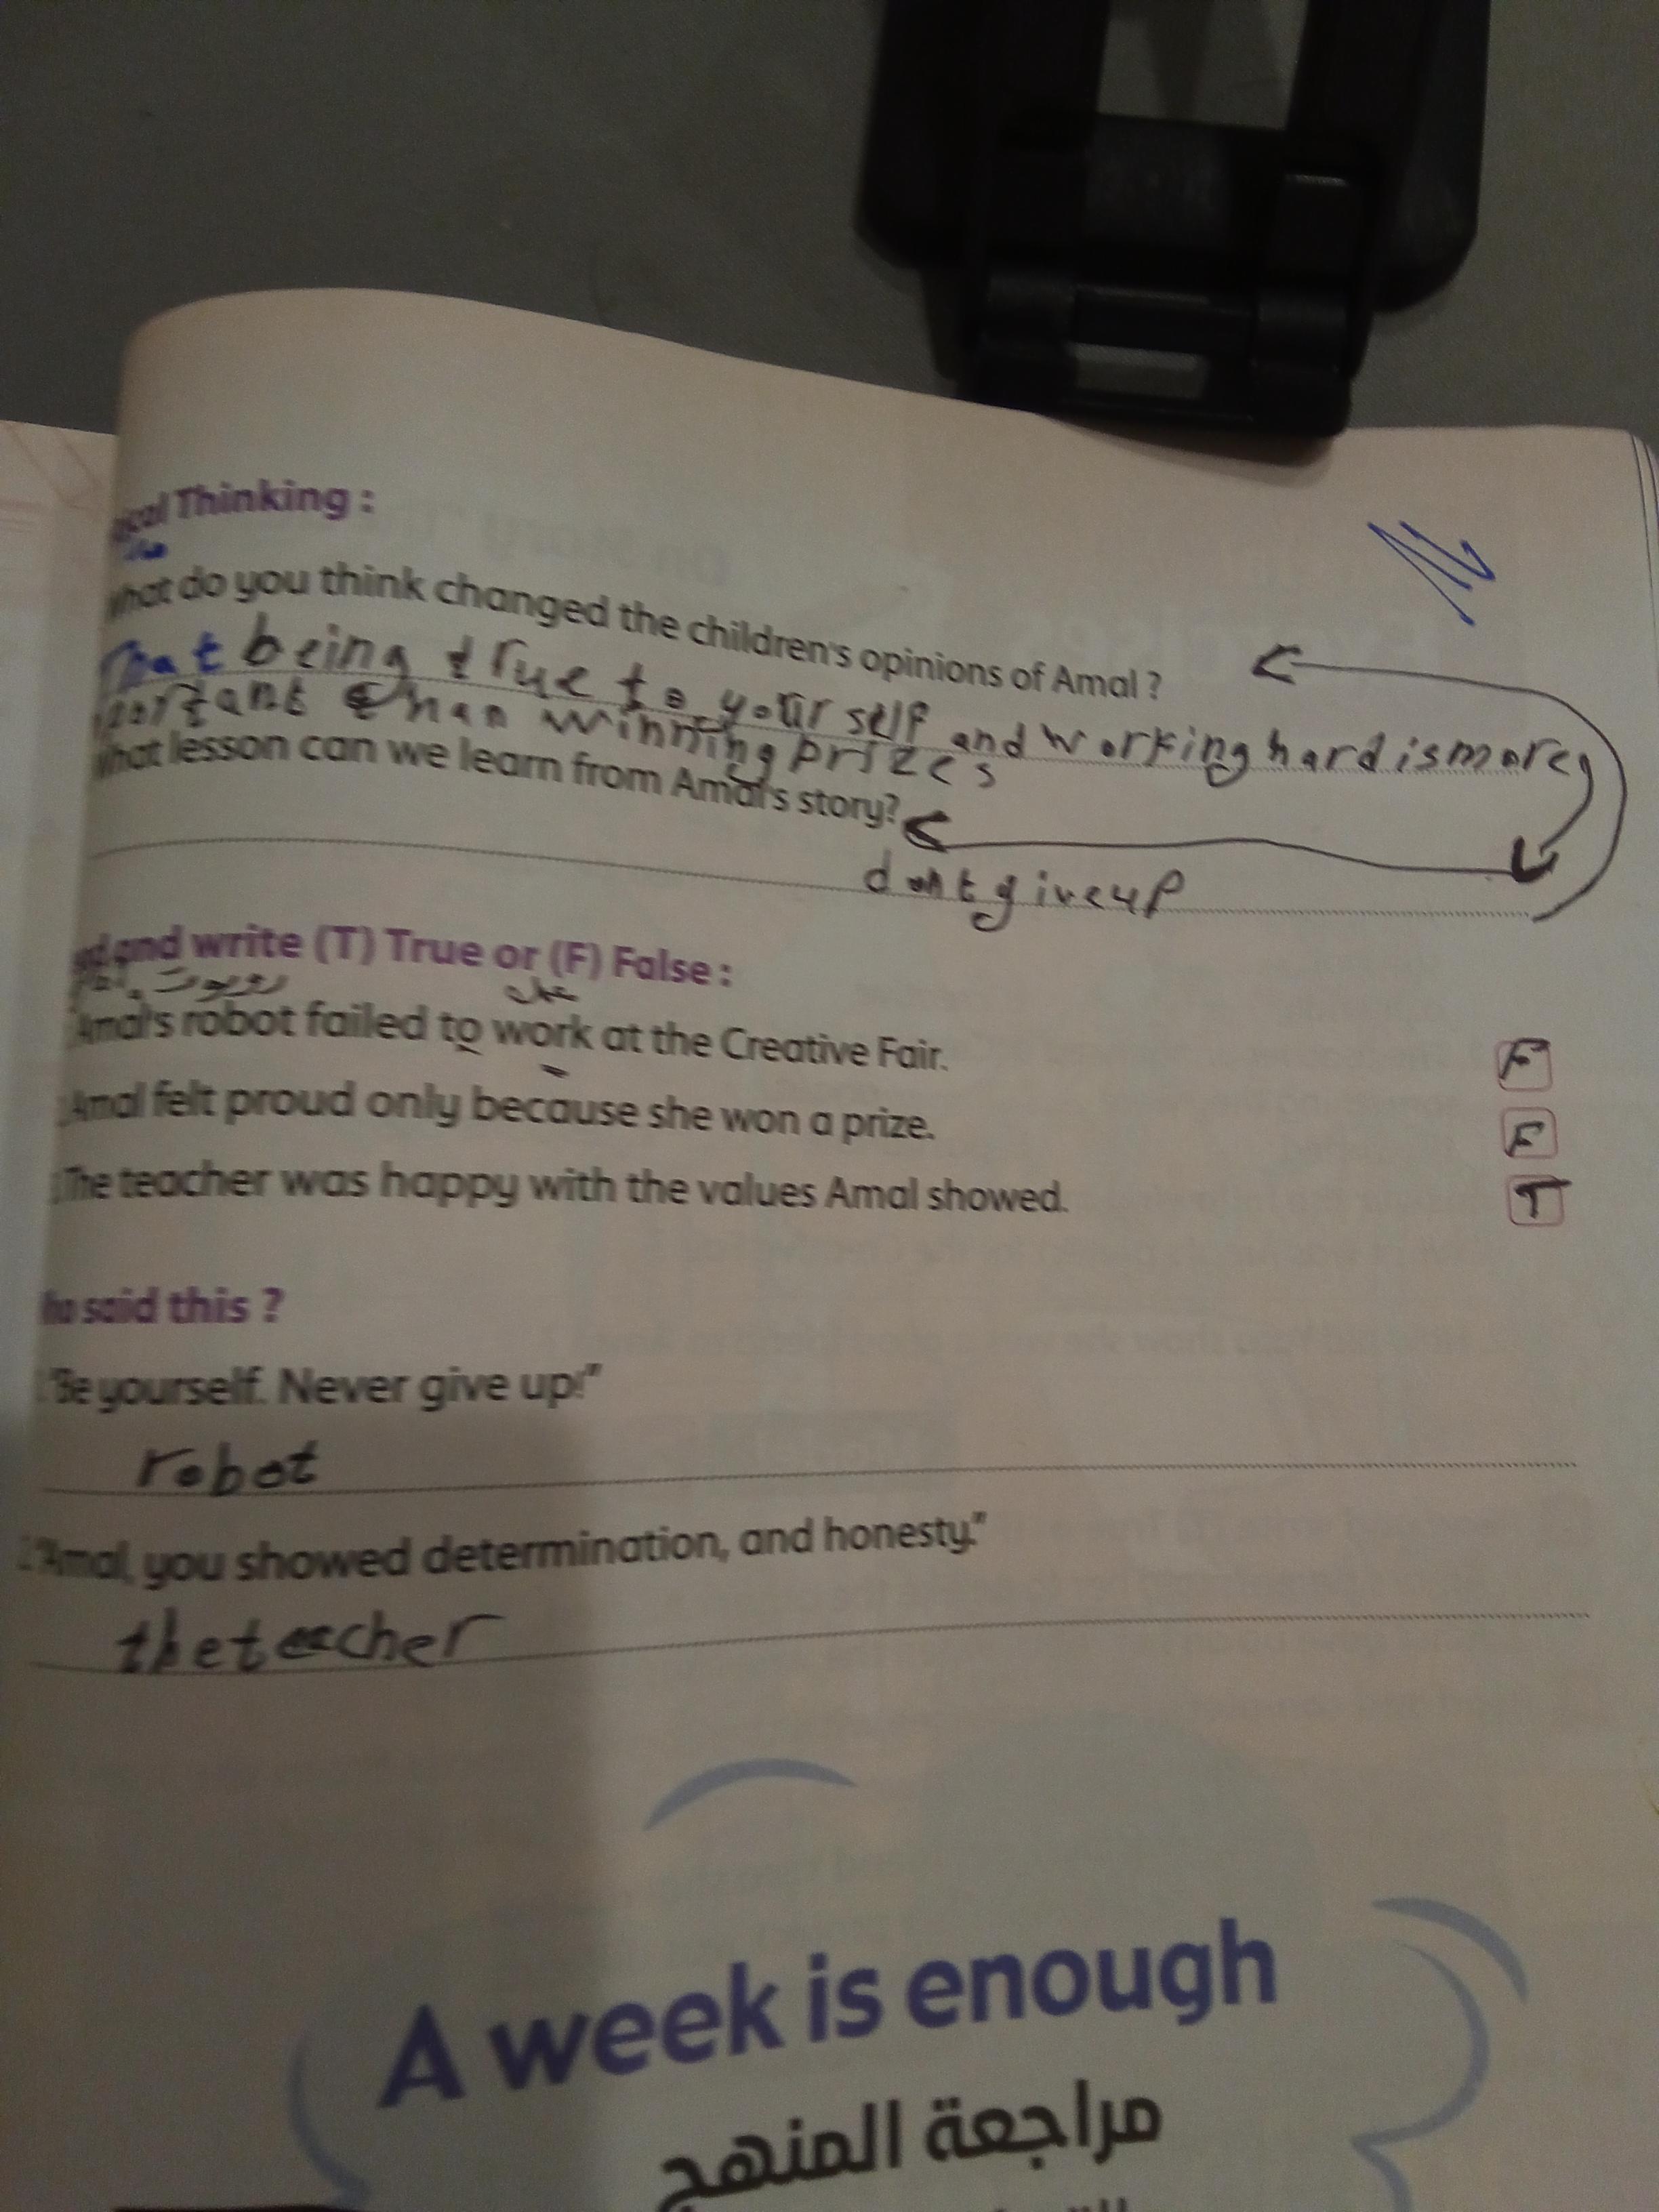 Thinking :
What do you think changed the children's opinions of Amal ?
That being true to your self and working hard is more
portant than winning prizes
What lesson can we learn from Amal's story?
dont give up
and write (T) True or (F) False :
روبوت
عمل
Amal's robot failed to work at the Creative Fair. F
Amal felt proud only because she won a prize. F
The teacher was happy with the values Amal showed. T
said this ?
"Be yourself. Never give up!"
robot
"Amal, you showed determination, and honesty."
the teacher
A week is enough
مراجعة المنهج